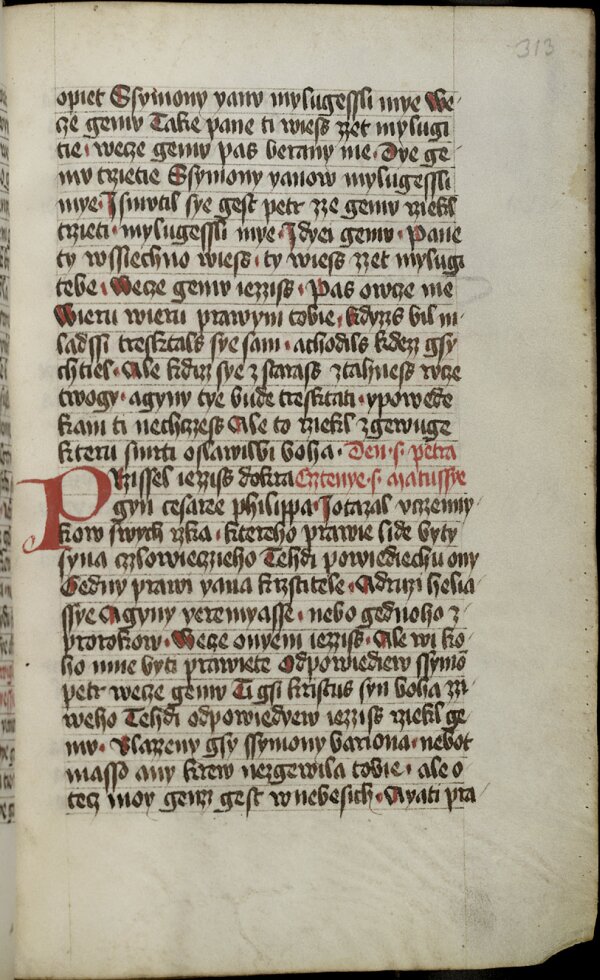 313
opiet Ssymony yanw mylugessli mye We
cze gemu Take pane ti wiess zzet mylugi
tie · wecze gemu pas berany me · Dye ge
mu trzietie Ssymony yanow mylugessli
mye · I smutil sye gest petr zze gemu rziekl
trzieti · mylugessli mye · I dyei gemu · Pane
ty wssiechno wiess · ty wiess zzet mylugi
tebe · Wecze gemu iezziss · Pas owcze me
Wieru wieru prawym tobie · kdyzs bil m
ladssi tresktals sye sam · achodils kdez gsy
chtiel · Ale kdiz sye zstarass ztahness rucze
twogy · agyny tye bude tresktati · ypowede
kam ti nechczess Ale to rziekl zgewuge
kteru smrti oslawilbi boha · Den · s · petra
Przissel iezziss dokra Cztenye · s · Matussye
gyn cesaree philippa · Iotazal vczenny
kow swych rzka · ktereho prawie lide byty
syna czlowieczieho Tehdi powiediechu ony
Gedny prawi yana krzstitele · Adruzi helia
ssye Agyny yeremyasse · nebo gednoho z
prorokow · Wecze onyem iezziss · Ale wi ko
ho mne byti prawiete Odpowiediew ssymo
petr wecze gemu Ti gsi kristus syn boha zi
weho Tehdi odpowiedyew iezziss rziekl ge
mu · Blazeny gsy ssymony bariona · nebot
masso any krew nezgewila tobie · ale o
tecz moy genz gest wnebesich · Ayati pra